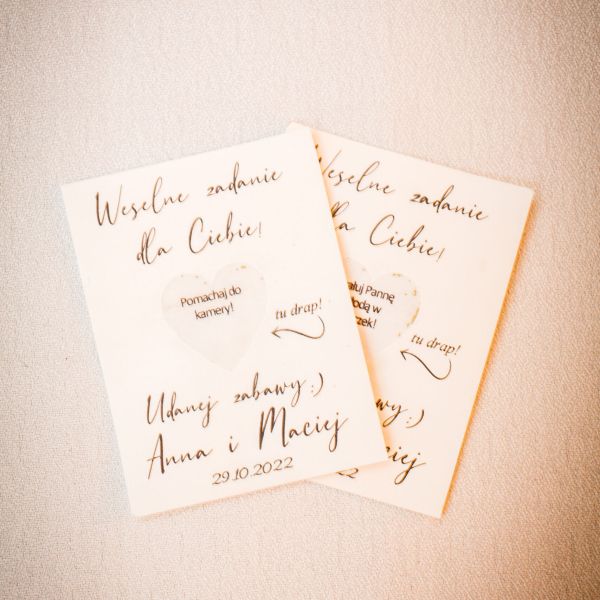 Weselne zadanie
dla Ciebie!
Pomachaj do
kamery!
tu drap!
Udanej zabawy:)
Anna i Maciej
29.10.2022
Weselne zadanie
dla Ciebie!
Pannę
w
tu drap!